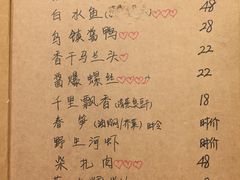 白水鱼 48
乌镇酱鸭 28
香干马兰头 22
酱爆螺丝 22
千里飘香 18
春笋 时价
野生河虾 时价
柴扎肉 48